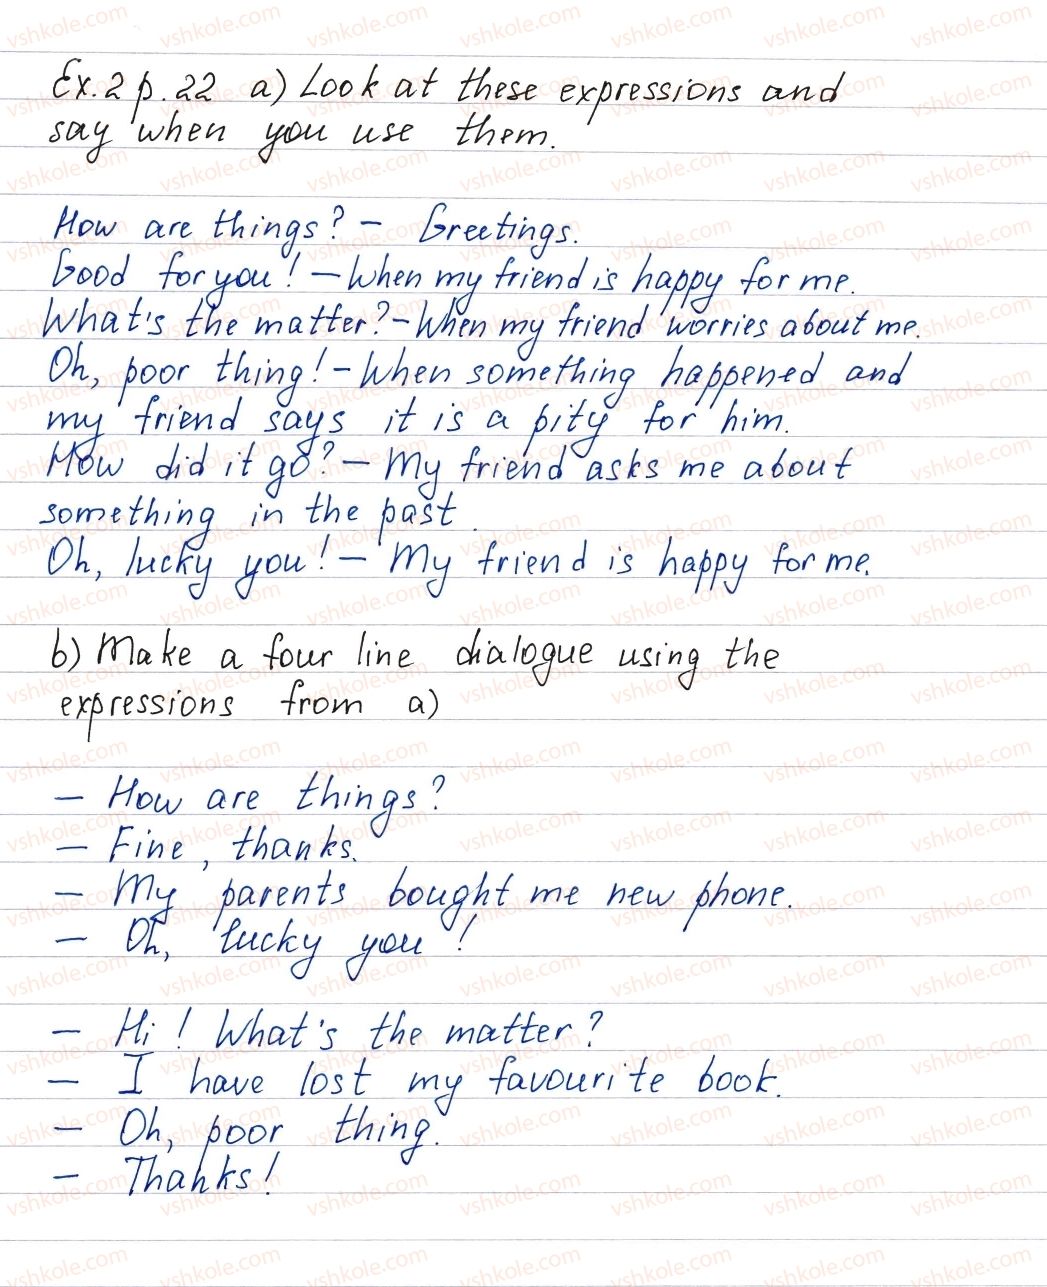 Ex.2 p.22 a) Look at these expressions and
say when you use them.
How are things? – Greetings.
Good for you! – When my friend is happy for me.
What's the matter? – When my friend worries about me.
Oh, poor thing! – When something happened and
my friend says it is a pity for him.
How did it go? – My friend asks me about
something in the past.
Oh, lucky you! – My friend is happy for me.
b) Make a four line dialogue using the
expressions from a)
– How are things?
– Fine, thanks.
– My parents bought me new phone.
– Oh, lucky you!
– Hi! What's the matter?
– I have lost my favourite book.
– Oh, poor thing.
– Thanks!
vshkole.com